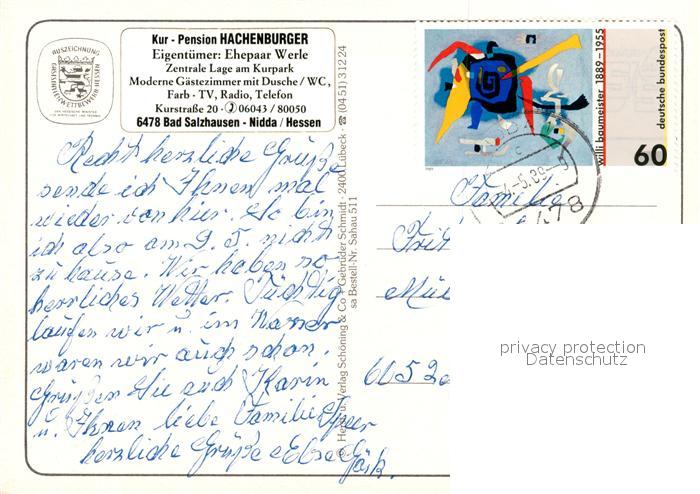 AUSZEICHNUNG
GÄSTEWETTBEWERB HESSEN
Kur - Pension HACHENBURGER
Eigentümer: Ehepaar Werle
Zentrale Lage am Kurpark
Moderne Gästezimmer mit Dusche / WC,
Farb - TV, Radio, Telefon
Kurstraße 20 · 06043 / 80050
6478 Bad Salzhausen - Nidda / Hessen
willi baumeister 1889-1955
deutsche bundespost
60
-5.89-
6478
Recht herzliche Grüße
sende ich Ihnen mal
wieder von hier. So bin
ich also am 9. 5. nicht
zu hause. Wir haben so
herrliches Wetter. Tüchtig
laufen wir u. im Wasser
waren wir auch schon.
Grüßen Sie auch Karin
u. Ihnen liebe Familie
herzliche Grüße Else
Herst. u. Verlag Schöning & Co + Gebrüder Schmidt · 2400 Lübeck · ☎ (04 51) 3 12 24
sa Bestell-Nr. Sahau 511
Familie
Frit
Mü
6052
privacy protection
Datenschutz